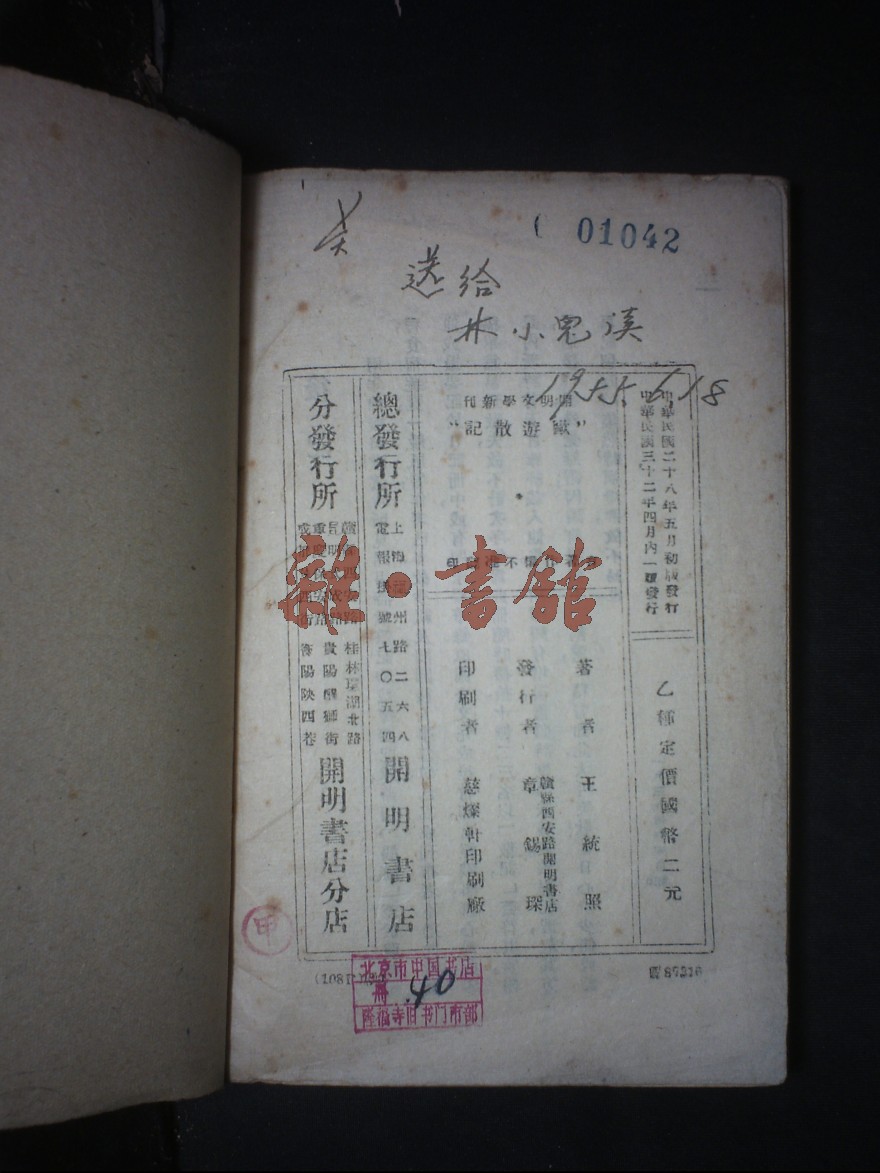 01042
送给
林小鬼漢
1955.6.18
中華民國二十八年五月初版發行
中華民國三十二年四月內一版發行
乙種定價國幣二元
開明文學新刊
“歐遊散記”
著者 王統照
發行者 章錫琛
贛縣西安路開明書店
印刷者 慈燦軒印刷廠
總發行所
上海福州路二六八
電報掛號七〇五四
開明書店
分發行所
桂林環湖北路
貴陽醒獅街
衡陽陝西巷
開明書店分店
雜·書館
甲
北京市中国书店
册
隆福寺旧书门市部